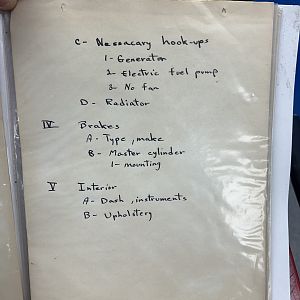 C- Nessacary hook-ups
1- Generator
2- Electric fuel pump
3- No fan
D- Radiator
IV Brakes
A- Type, make
B- Master cylinder
1- mounting
V Interior
A- Dash, instruments
B- Upholstery